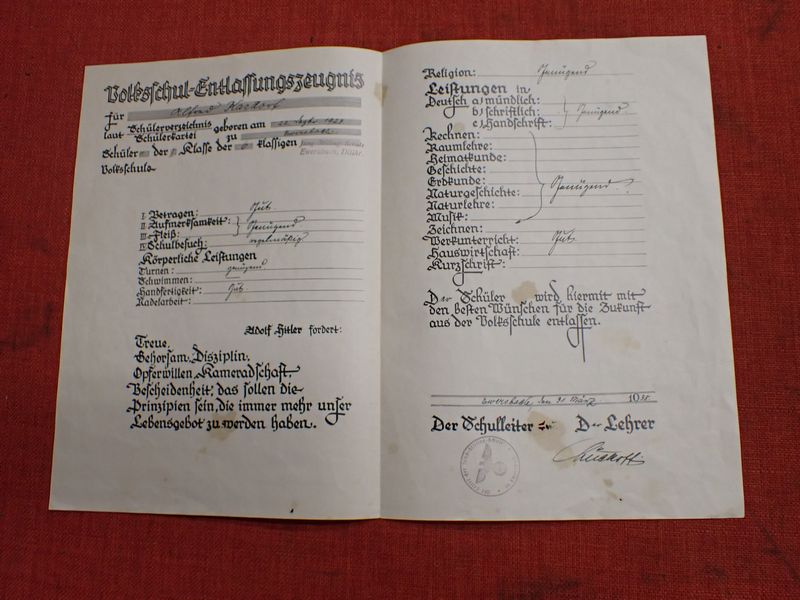 Volksschul-Entlassungszeugnis
für Alfred
laut Schülerverzeichnis geboren am
Schülerkartei zu Ewersbach
Schüler der Klasse der klassigen
Volksschule
I. Betragen: Gut
II. Aufmerksamkeit: } Genügend
III. Fleiß:
IV. Schulbesuch: regelmäßig
Körperliche Leistungen
Turnen: genügend
Schwimmen:
Handfertigkeit: Gut
Nadelarbeit:
Adolf Hitler fordert:
Treue,
Gehorsam, Disziplin,
Opferwillen, Kameradschaft,
Bescheidenheit, das sollen die
Prinzipien sein, die immer mehr unser
Lebensgebot zu werden haben.
Religion: Genügend
Leistungen in
Deutsch a) mündlich:
b) schriftlich: } Genügend
c) Handschrift:
Rechnen:
Raumlehre:
Heimatkunde:
Geschichte:
Erdkunde:
Naturgeschichte: Genügend
Naturlehre:
Musik:
Zeichnen:
Werkunterricht: Gut
Hauswirtschaft:
Kurzschrift:
Der Schüler wird hiermit mit
den besten Wünschen für die Zukunft
aus der Volksschule entlassen.
Ewersbach, den März 19
Der Schulleiter Der Lehrer